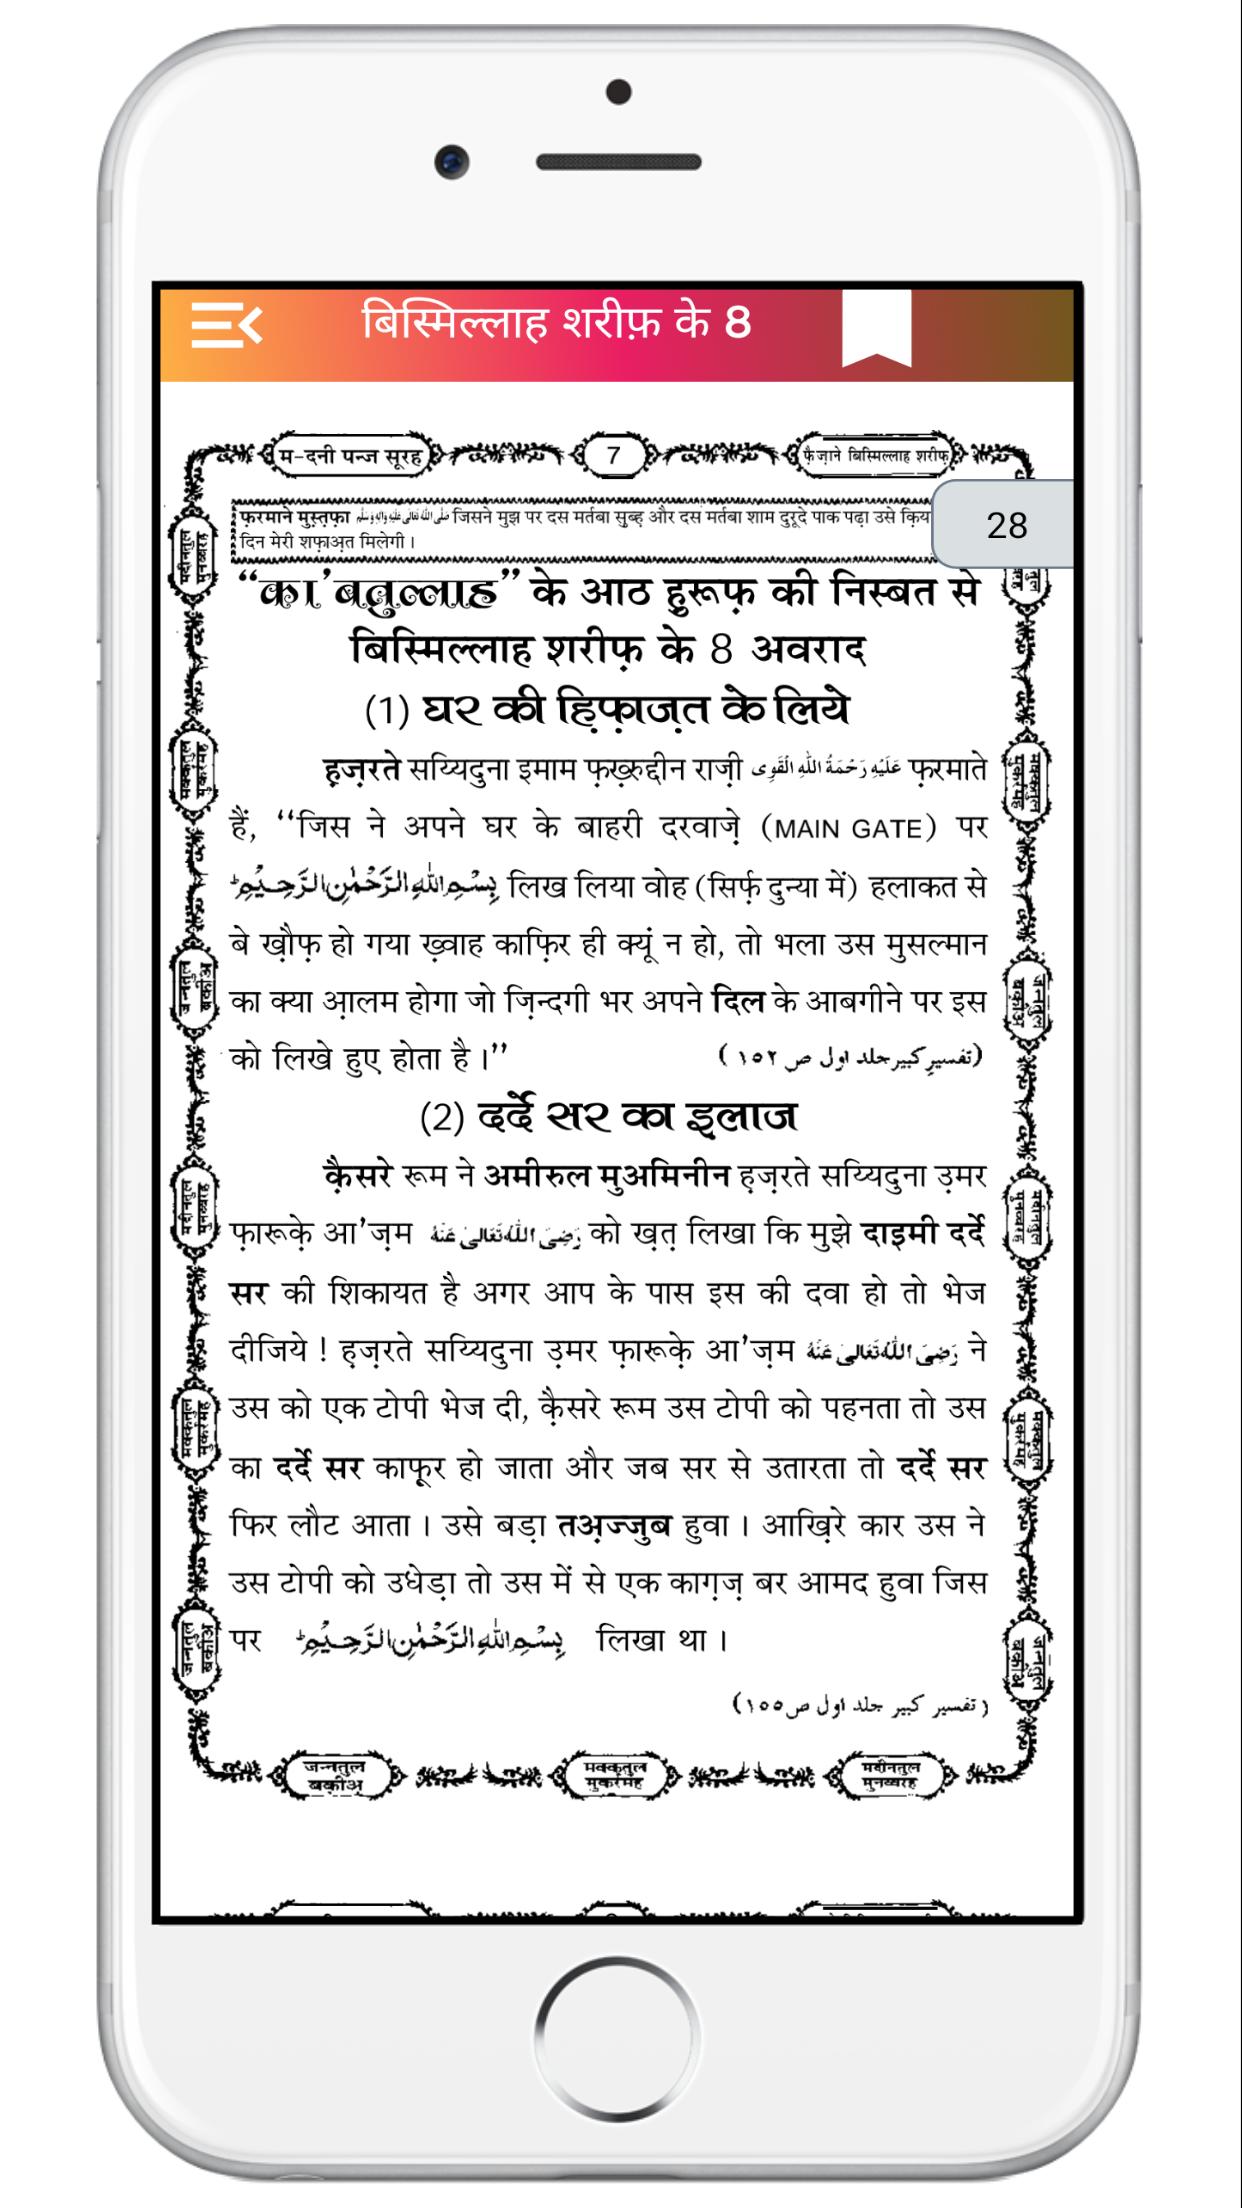 बिस्मिल्लाह शरीफ़ के 8
म-दनी पन्ज सूरह
7
फ़ैज़ाने बिस्मिल्लाह शरीफ़
28
फ़रमाने मुस्तफ़ा صلى الله تعالى عليه واله وسلم जिसने मुझ पर दस मर्तबा सुब्ह और दस मर्तबा शाम दुरूदे पाक पढ़ा उसे क़िया
दिन मेरी शफ़ाअ़त मिलेगी ।
“का'बतुल्लाह” के आठ हुरूफ़ की निस्बत से
बिस्मिल्लाह शरीफ़ के 8 अवराद
(1) घर की हि़फ़ाज़त के लिये
ह़ज़रते सय्यिदुना इमाम फ़ख़्रुद्दीन राज़ी عَلَيْهِ رَحْمَةُ اللّٰهِ الْقَوِى फ़रमाते
हैं, ‘‘जिस ने अपने घर के बाहरी दरवाज़े (MAIN GATE) पर
بِسْمِ اللّٰهِ الرَّحْمٰنِ الرَّحِيْمِ ؕ लिख लिया वोह (सिर्फ़ दुन्या में) हलाकत से
बे ख़ौफ़ हो गया ख़्वाह काफ़िर ही क्यूं न हो, तो भला उस मुसल्मान
का क्या आ़लम होगा जो ज़िन्दगी भर अपने दिल के आबगीने पर इस
को लिखे हुए होता है ।’’ (تفسیرِ کبیر جلد اول ص ۱۵۲)
(2) दर्दे सर का इ़लाज
क़ैसरे रूम ने अमीरुल मुअमिनीन ह़ज़रते सय्यिदुना उ़मर
फ़ारूक़े आ'ज़म رَضِىَ اللّٰهُ تَعَالٰى عَنْهُ को ख़त़ लिखा कि मुझे दाइमी दर्दे
सर की शिकायत है अगर आप के पास इस की दवा हो तो भेज
दीजिये ! ह़ज़रते सय्यिदुना उ़मर फ़ारूक़े आ'ज़म رَضِىَ اللّٰهُ تَعَالٰى عَنْهُ ने
उस को एक टोपी भेज दी, क़ैसरे रूम उस टोपी को पहनता तो उस
का दर्दे सर काफ़ूर हो जाता और जब सर से उतारता तो दर्दे सर
फिर लौट आता । उसे बड़ा तअ़ज्जुब हुवा । आख़िरे कार उस ने
उस टोपी को उधेड़ा तो उस में से एक काग़ज़ बर आमद हुवा जिस
पर بِسْمِ اللّٰهِ الرَّحْمٰنِ الرَّحِيْمِ ؕ लिखा था ।
(تفسیر کبیر جلد اول ص ۱۵۵)
मदीनतुल
मुनव्वरह
मक्कतुल
मुकर्रमह
जन्नतुल
बक़ीअ़
मदीनतुल
मुनव्वरह
मक्कतुल
मुकर्रमह
जन्नतुल
बक़ीअ़
मक्कतुल
मुकर्रमह
जन्नतुल
बक़ीअ़
मदीनतुल
मुनव्वरह
मक्कतुल
मुकर्रमह
जन्नतुल
बक़ीअ़
जन्नतुल
बक़ीअ़
मक्कतुल
मुकर्रमह
मदीनतुल
मुनव्वरह